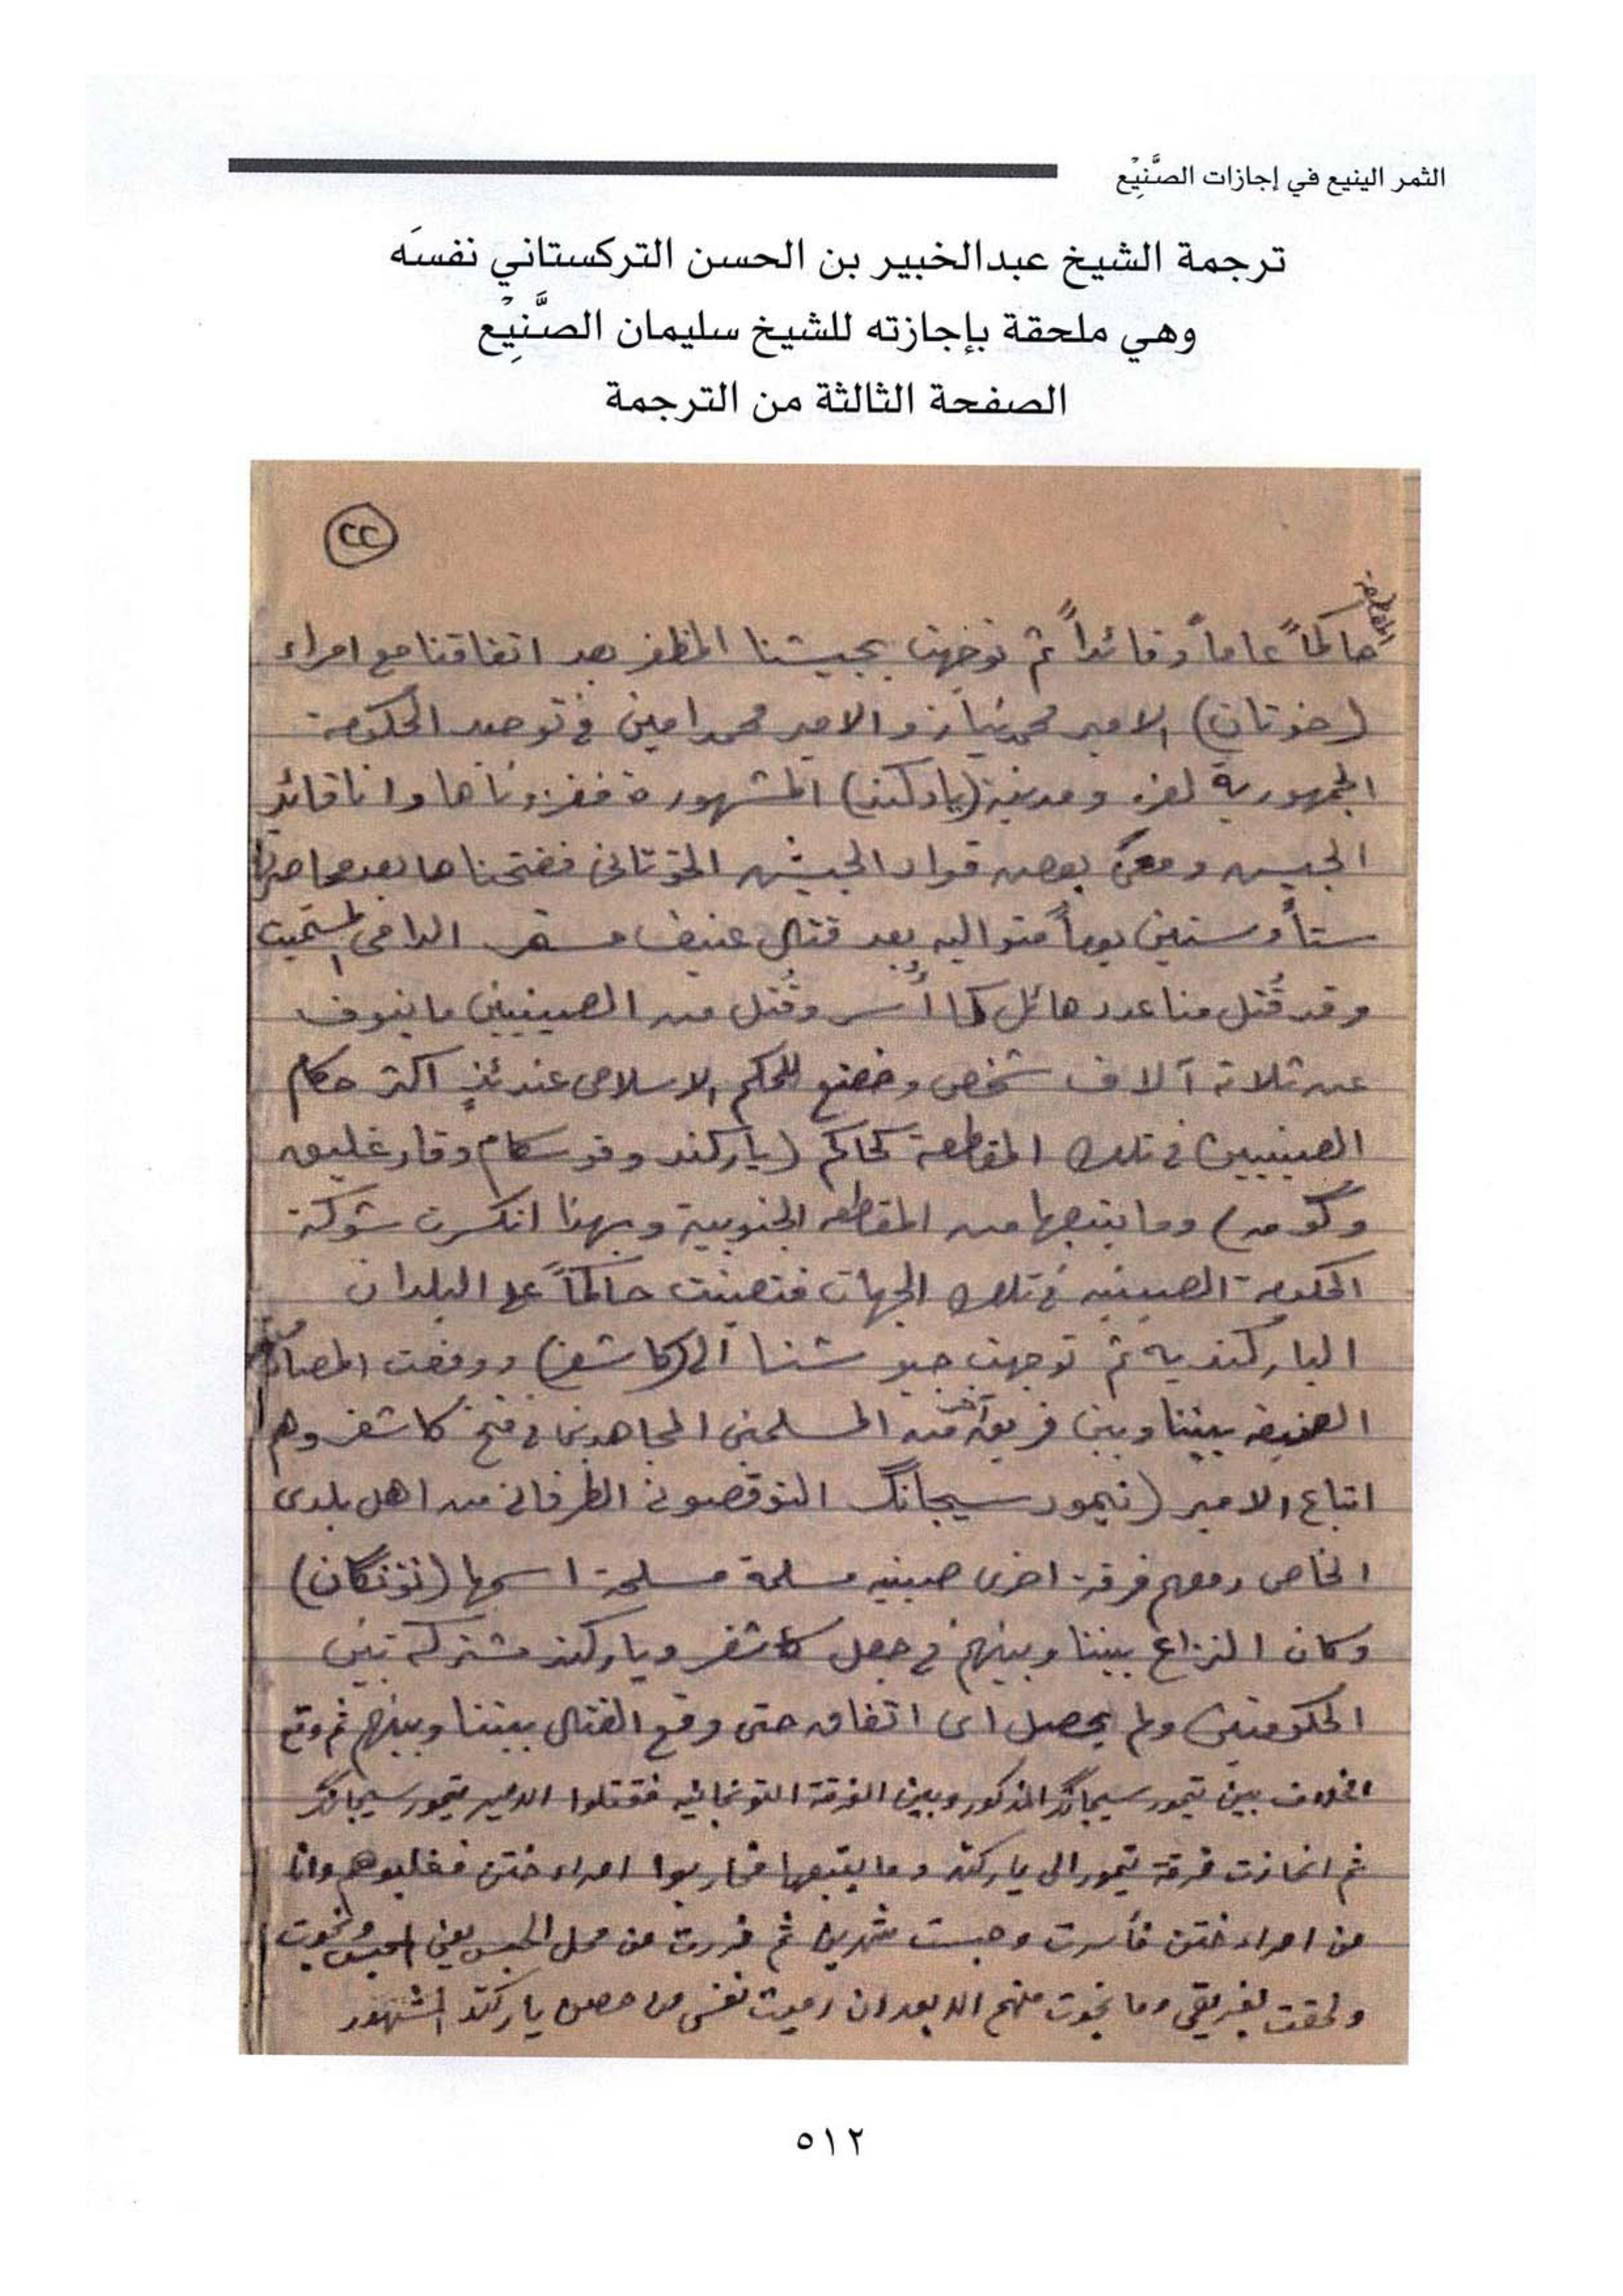 الثمر الينيع في إجازات الصَّنِيْع
ترجمة الشيخ عبدالخبير بن الحسن التركستاني نفسَه
وهي ملحقة بإجازته للشيخ سليمان الصَّنِيْع
الصفحة الثالثة من الترجمة
٢٢
حاكماً عاماً وقائداً ثم توجهت بجيشنا المظفر بعد اتفاقنا مع امراء
(خوتان) الامير محمد نياز والامير محمد امين في توحيد الحكومة
الجمهورية لغزو مدينة (ياركند) المشهورة فغزوناها وانا قائد
الجيش ومعي بعض قواد الجيش الخوتاني ففتحناها بعد محاصرتها
ستاً وستين يوماً متواليه بعد قتال عنيف الدامي المستميت
وقد قُتل منا عدد هائل كما أُسر وقُتل من الصينيين ما ينوف
عن ثلاثة آلاف شخص وخضع للحكم الاسلامي عندئذٍ اكثر حكام
الصينيين في تلك المقاطعة كحاكم (ياركند وقوسكام وقارغليق
وگومه) وما يتبعها من المقاطعه الجنوبية وبهذا انكسرت شوكة
الحكومة الصينيه في تلك الجهات فتعينت حاكماً على البلدان
الياركنديه ثم توجهت جيوشنا الى (كاشغر) ووقعت المصادمة
العنيفه بيننا وبين فريق آخر من المسلمين المجاهدين في فتح كاشغر وهم
اتباع الامير (تيمور سيجانگ التوقصوني الطرفاني من اهل بلدى
الخاص ومعهم فرقة اخرى صينيه مسلمة مسلحة اسمها (تونگان)
وكان النزاع بيننا وبينهم في جعل كاشغر وياركند مشتركه بين
الحكومتين ولم يحصل اى اتفاق حتى وقع القتال بيننا وبينهم ثم وقع
الخلاف بين تيمور سيجانگ المذكور وبين الفرقة التونجانيه فقتلوا الامير تيمور سيجانگ
ثم انحازت فرقة تيمور الى ياركند وما يتبعها فحاربوا امراء ختن فغلبوهم وانا
من امراء ختن فأسرت وحبست شهرين ثم فررت من محل الحبس يعني الحبس ونجوت
ولحقت بفريقي وما نجوت منهم الا بعد ان رميت نفسى من حصن ياركند المشهور
٥١٢